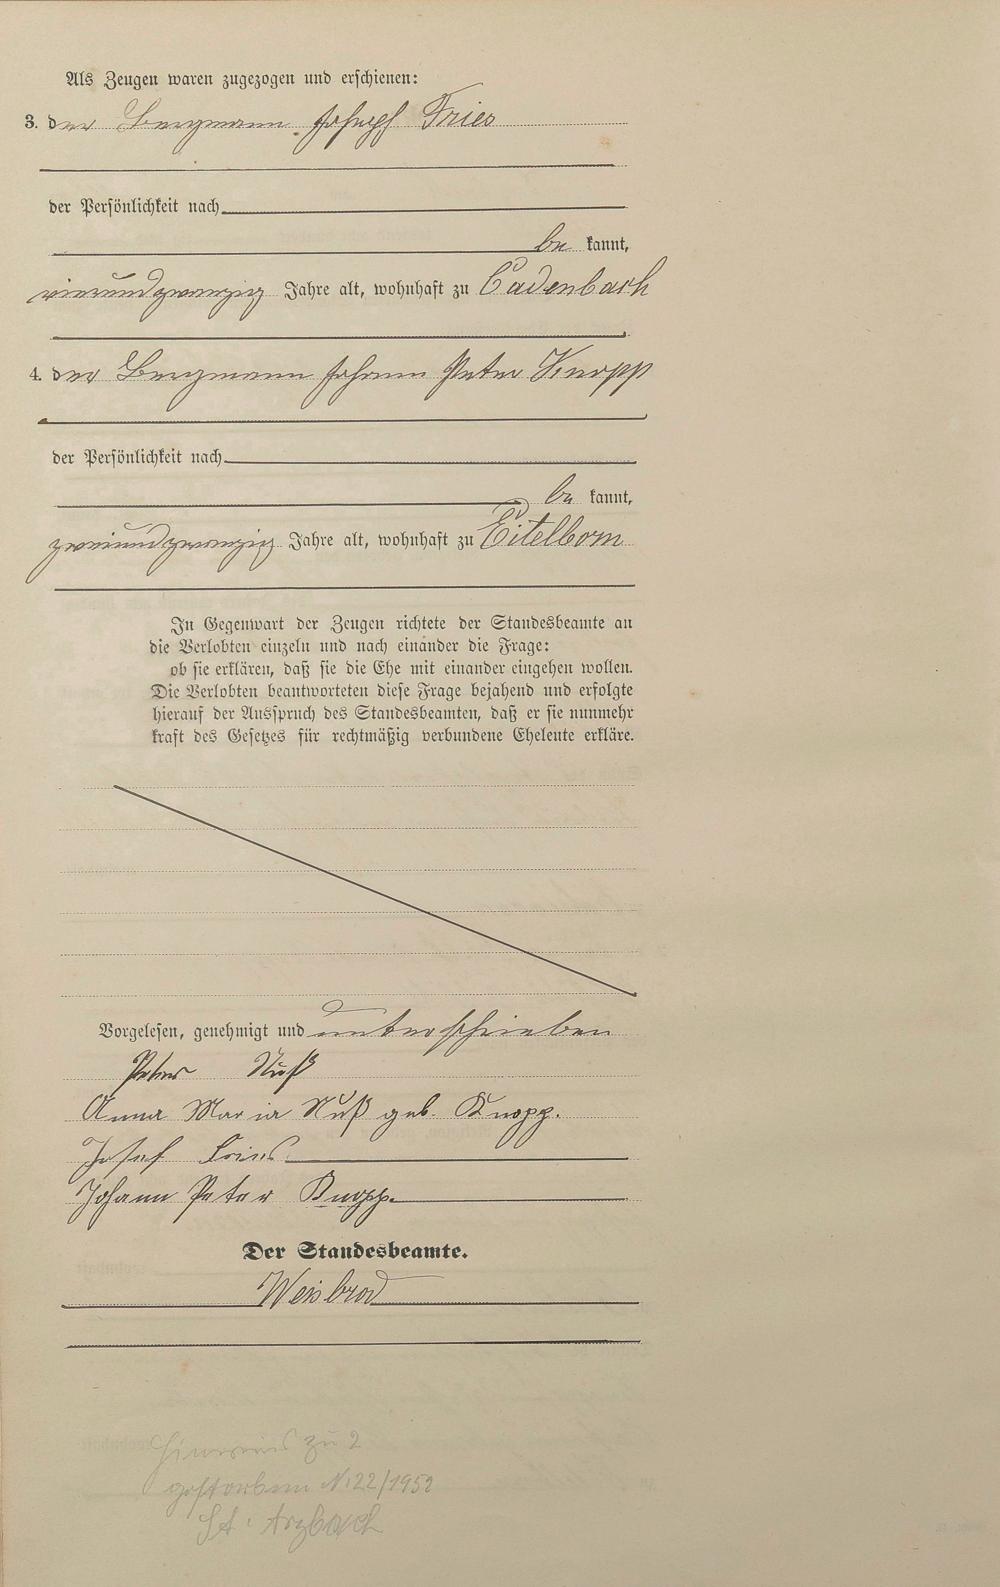 Als Zeugen waren zugezogen und erschienen:
3. der Bergmann Joseph Fries
der Persönlichkeit nach
be kannt,
vierundzwanzig Jahre alt, wohnhaft zu Cadenbach
4. der Bergmann Johann Peter Knopp
der Persönlichkeit nach
be kannt,
zweiundzwanzig Jahre alt, wohnhaft zu Eitelborn
In Gegenwart der Zeugen richtete der Standesbeamte an
die Verlobten einzeln und nach einander die Frage:
ob sie erklären, daß sie die Ehe mit einander eingehen wollen.
Die Verlobten beantworteten diese Frage bejahend und erfolgte
hierauf der Ausspruch des Standesbeamten, daß er sie nunmehr
kraft des Gesetzes für rechtmäßig verbundene Eheleute erkläre.
Vorgelesen, genehmigt und unterschrieben
Peter Nuß
Anna Maria Nuß geb. Knopp.
Josef Fries
Johann Peter Knopp.
Der Standesbeamte.
Weisbrod
Hinweis zu 2
gestorben N. 22/1952
St. Arzbach